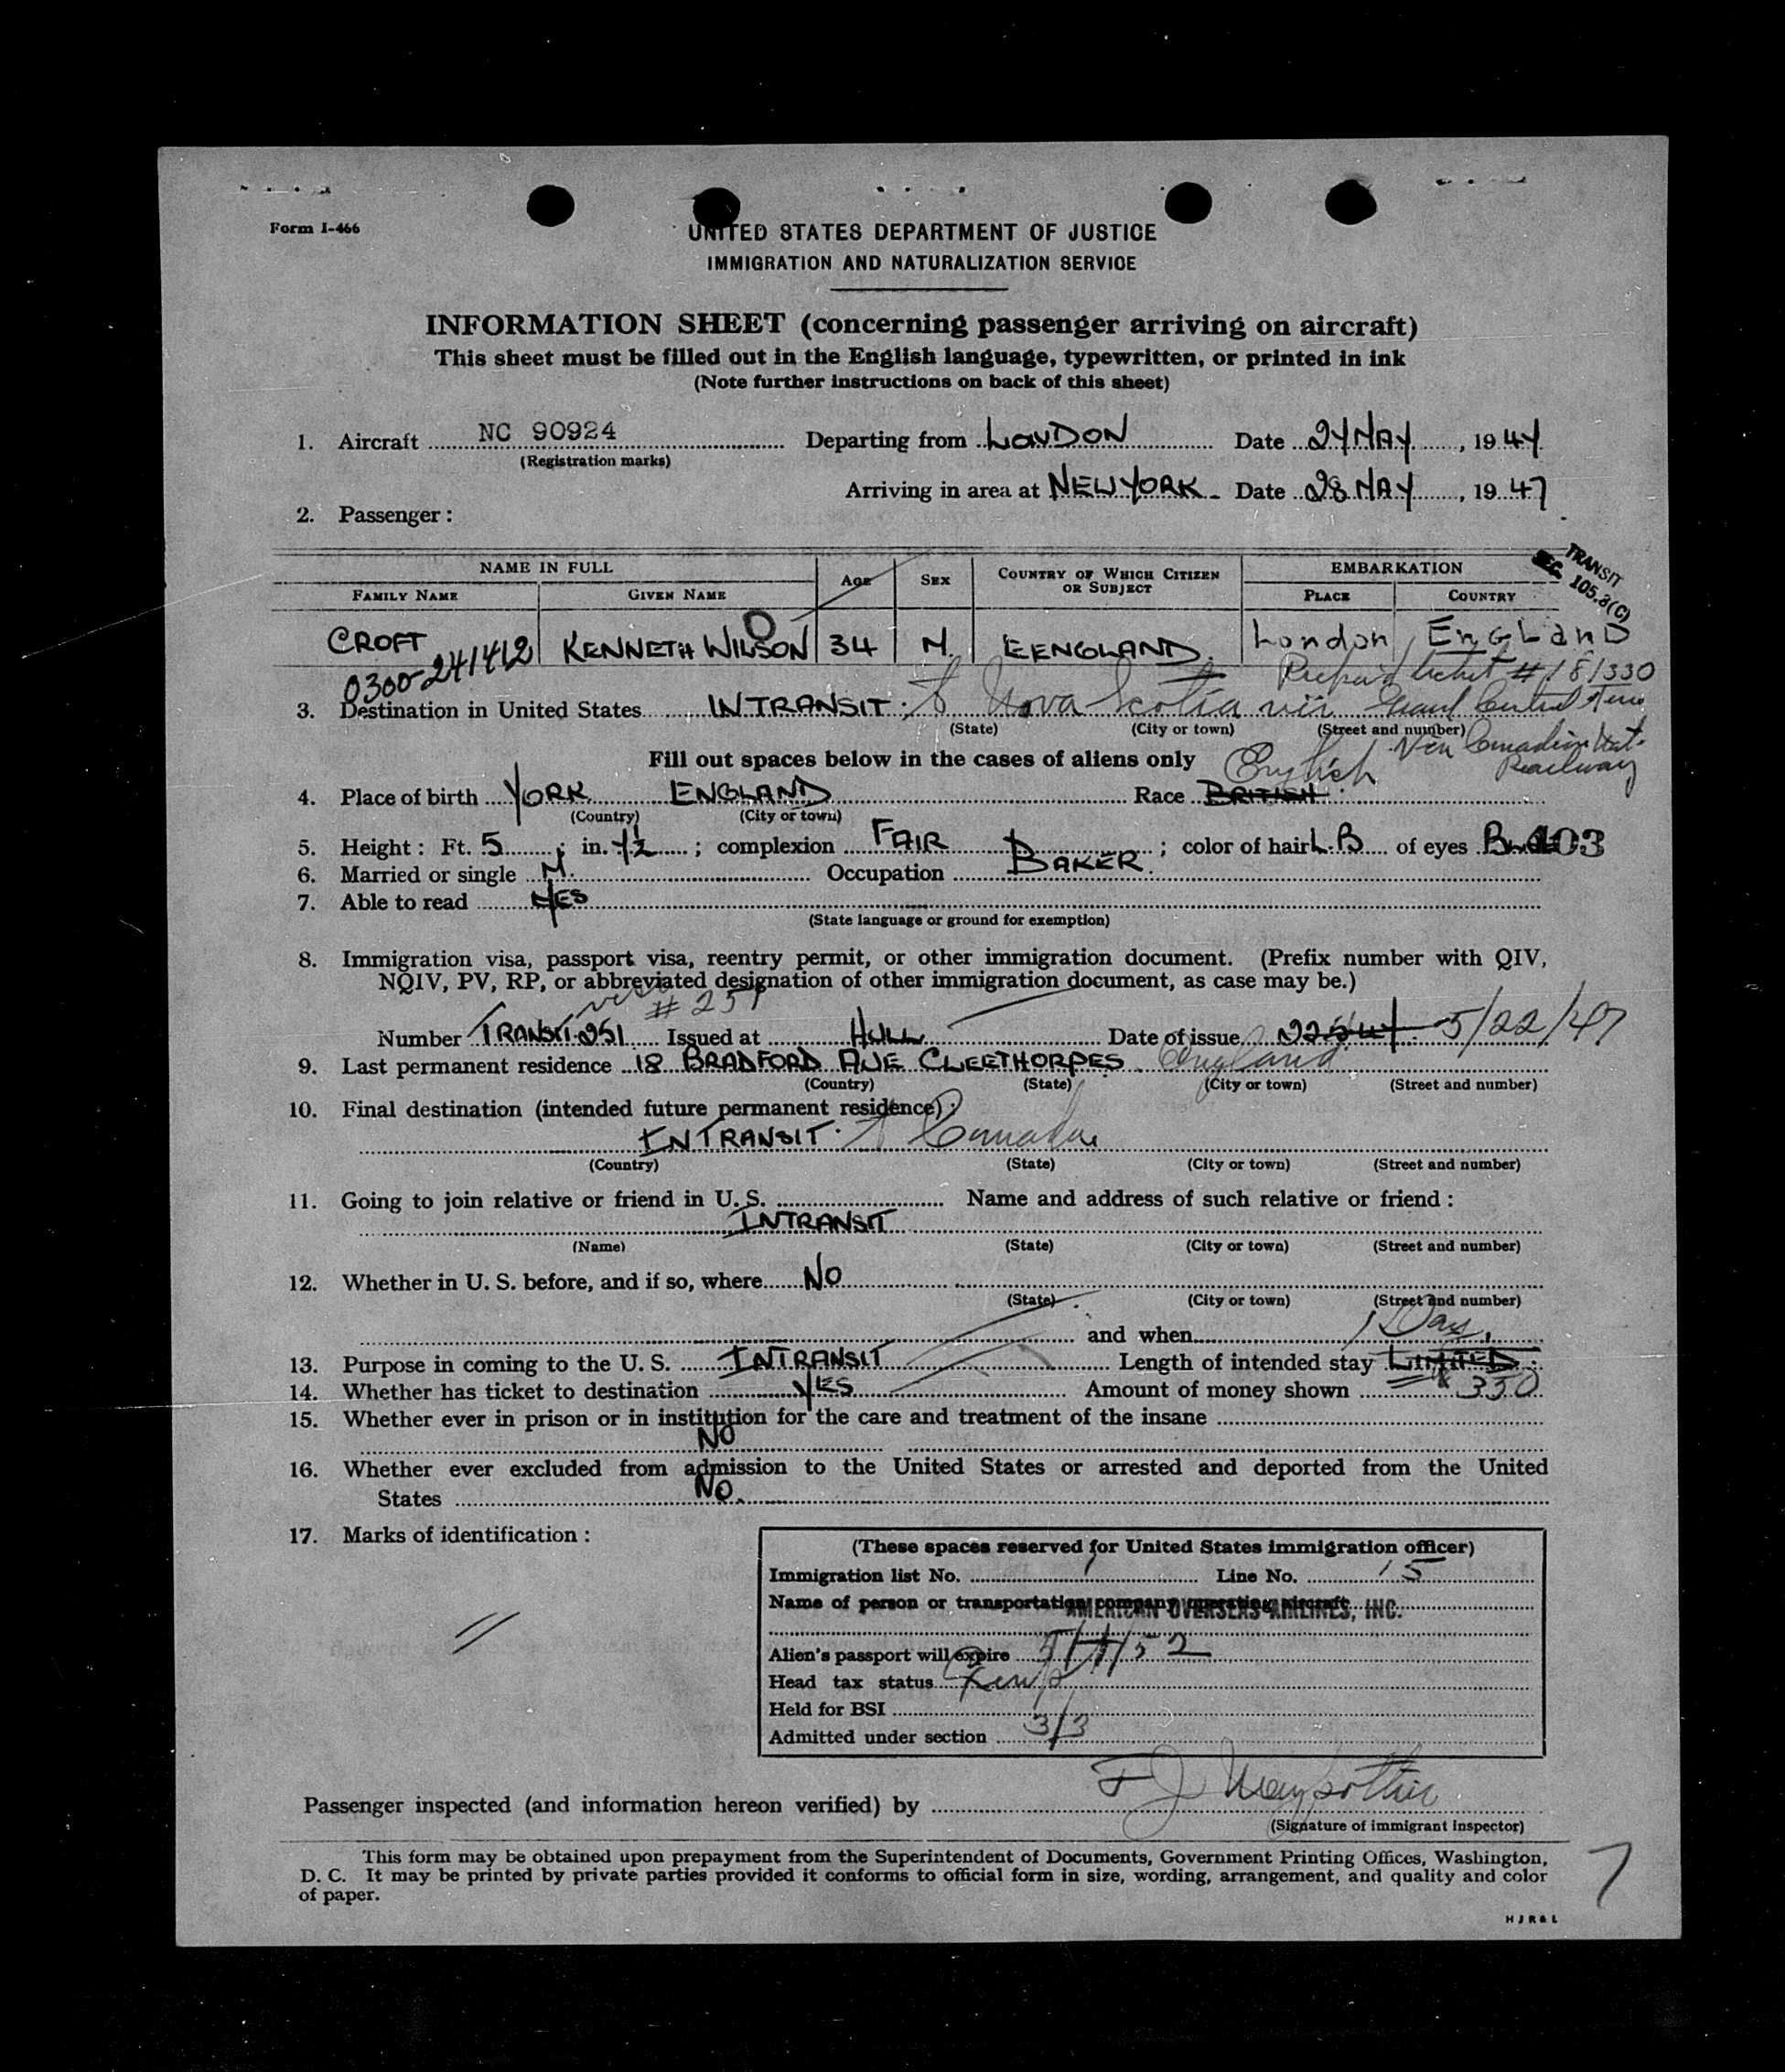 Form I-466
UNITED STATES DEPARTMENT OF JUSTICE
IMMIGRATION AND NATURALIZATION SERVICE
INFORMATION SHEET (concerning passenger arriving on aircraft)
This sheet must be filled out in the English language, typewritten, or printed in ink
(Note further instructions on back of this sheet)
1. Aircraft NC 90924 Departing from LONDON Date 27 MAY, 1947
(Registration marks)
Arriving in area at NEW YORK Date 28 MAY, 1947
2. Passenger:
TRANSIT
SEC. 105.3(C)
NAME IN FULL Age Sex Country of Which Citizen or Subject EMBARKATION
Family Name Given Name Place Country
CROFT KENNETH WILSON 34 M. EENGLAND. London, ENGLAND
0300-241412 Prepaid ticket # 181330
3. Destination in United States INTRANSIT. to Nova Scotia via Grand Central
(State) (City or town) (Street and number)
Via Canadian Nat. Railway
Fill out spaces below in the cases of aliens only
English
4. Place of birth YORK ENGLAND Race BRITISH
(Country) (City or town)
5. Height: Ft. 5; in. 7½; complexion FAIR; color of hair L.B of eyes 403
6. Married or single M. Occupation BAKER.
7. Able to read YES
(State language or ground for exemption)
8. Immigration visa, passport visa, reentry permit, or other immigration document. (Prefix number with QIV,
NQIV, PV, RP, or abbreviated designation of other immigration document, as case may be.)
visa # 251
Number TRANSIT 251 Issued at HULL Date of issue 22.5.47. 5/22/47
9. Last permanent residence 18 BRADFORD AVE CLEETHORPES England
(Country) (State) (City or town) (Street and number)
10. Final destination (intended future permanent residence):
INTRANSIT. to Canada
(Country) (State) (City or town) (Street and number)
11. Going to join relative or friend in U. S. Name and address of such relative or friend:
INTRANSIT
(Name) (State) (City or town) (Street and number)
12. Whether in U. S. before, and if so, where NO
(State) (City or town) (Street and number)
and when
1 Day.
13. Purpose in coming to the U. S. INTRANSIT Length of intended stay LIMITED.
14. Whether has ticket to destination YES Amount of money shown 350
15. Whether ever in prison or in institution for the care and treatment of the insane
NO
16. Whether ever excluded from admission to the United States or arrested and deported from the United
States NO.
17. Marks of identification:
(These spaces reserved for United States immigration officer)
Immigration list No. 1 Line No. 15
Name of person or transportation company operating aircraft
AMERICAN OVERSEAS AIRLINES, INC.
Alien's passport will expire /52
Head tax status
Held for BSI
Admitted under section 3/3
Passenger inspected (and information hereon verified) by F J
(Signature of immigrant inspector)
This form may be obtained upon prepayment from the Superintendent of Documents, Government Printing Offices, Washington,
D. C. It may be printed by private parties provided it conforms to official form in size, wording, arrangement, and quality and color
of paper.
7
H J R & L